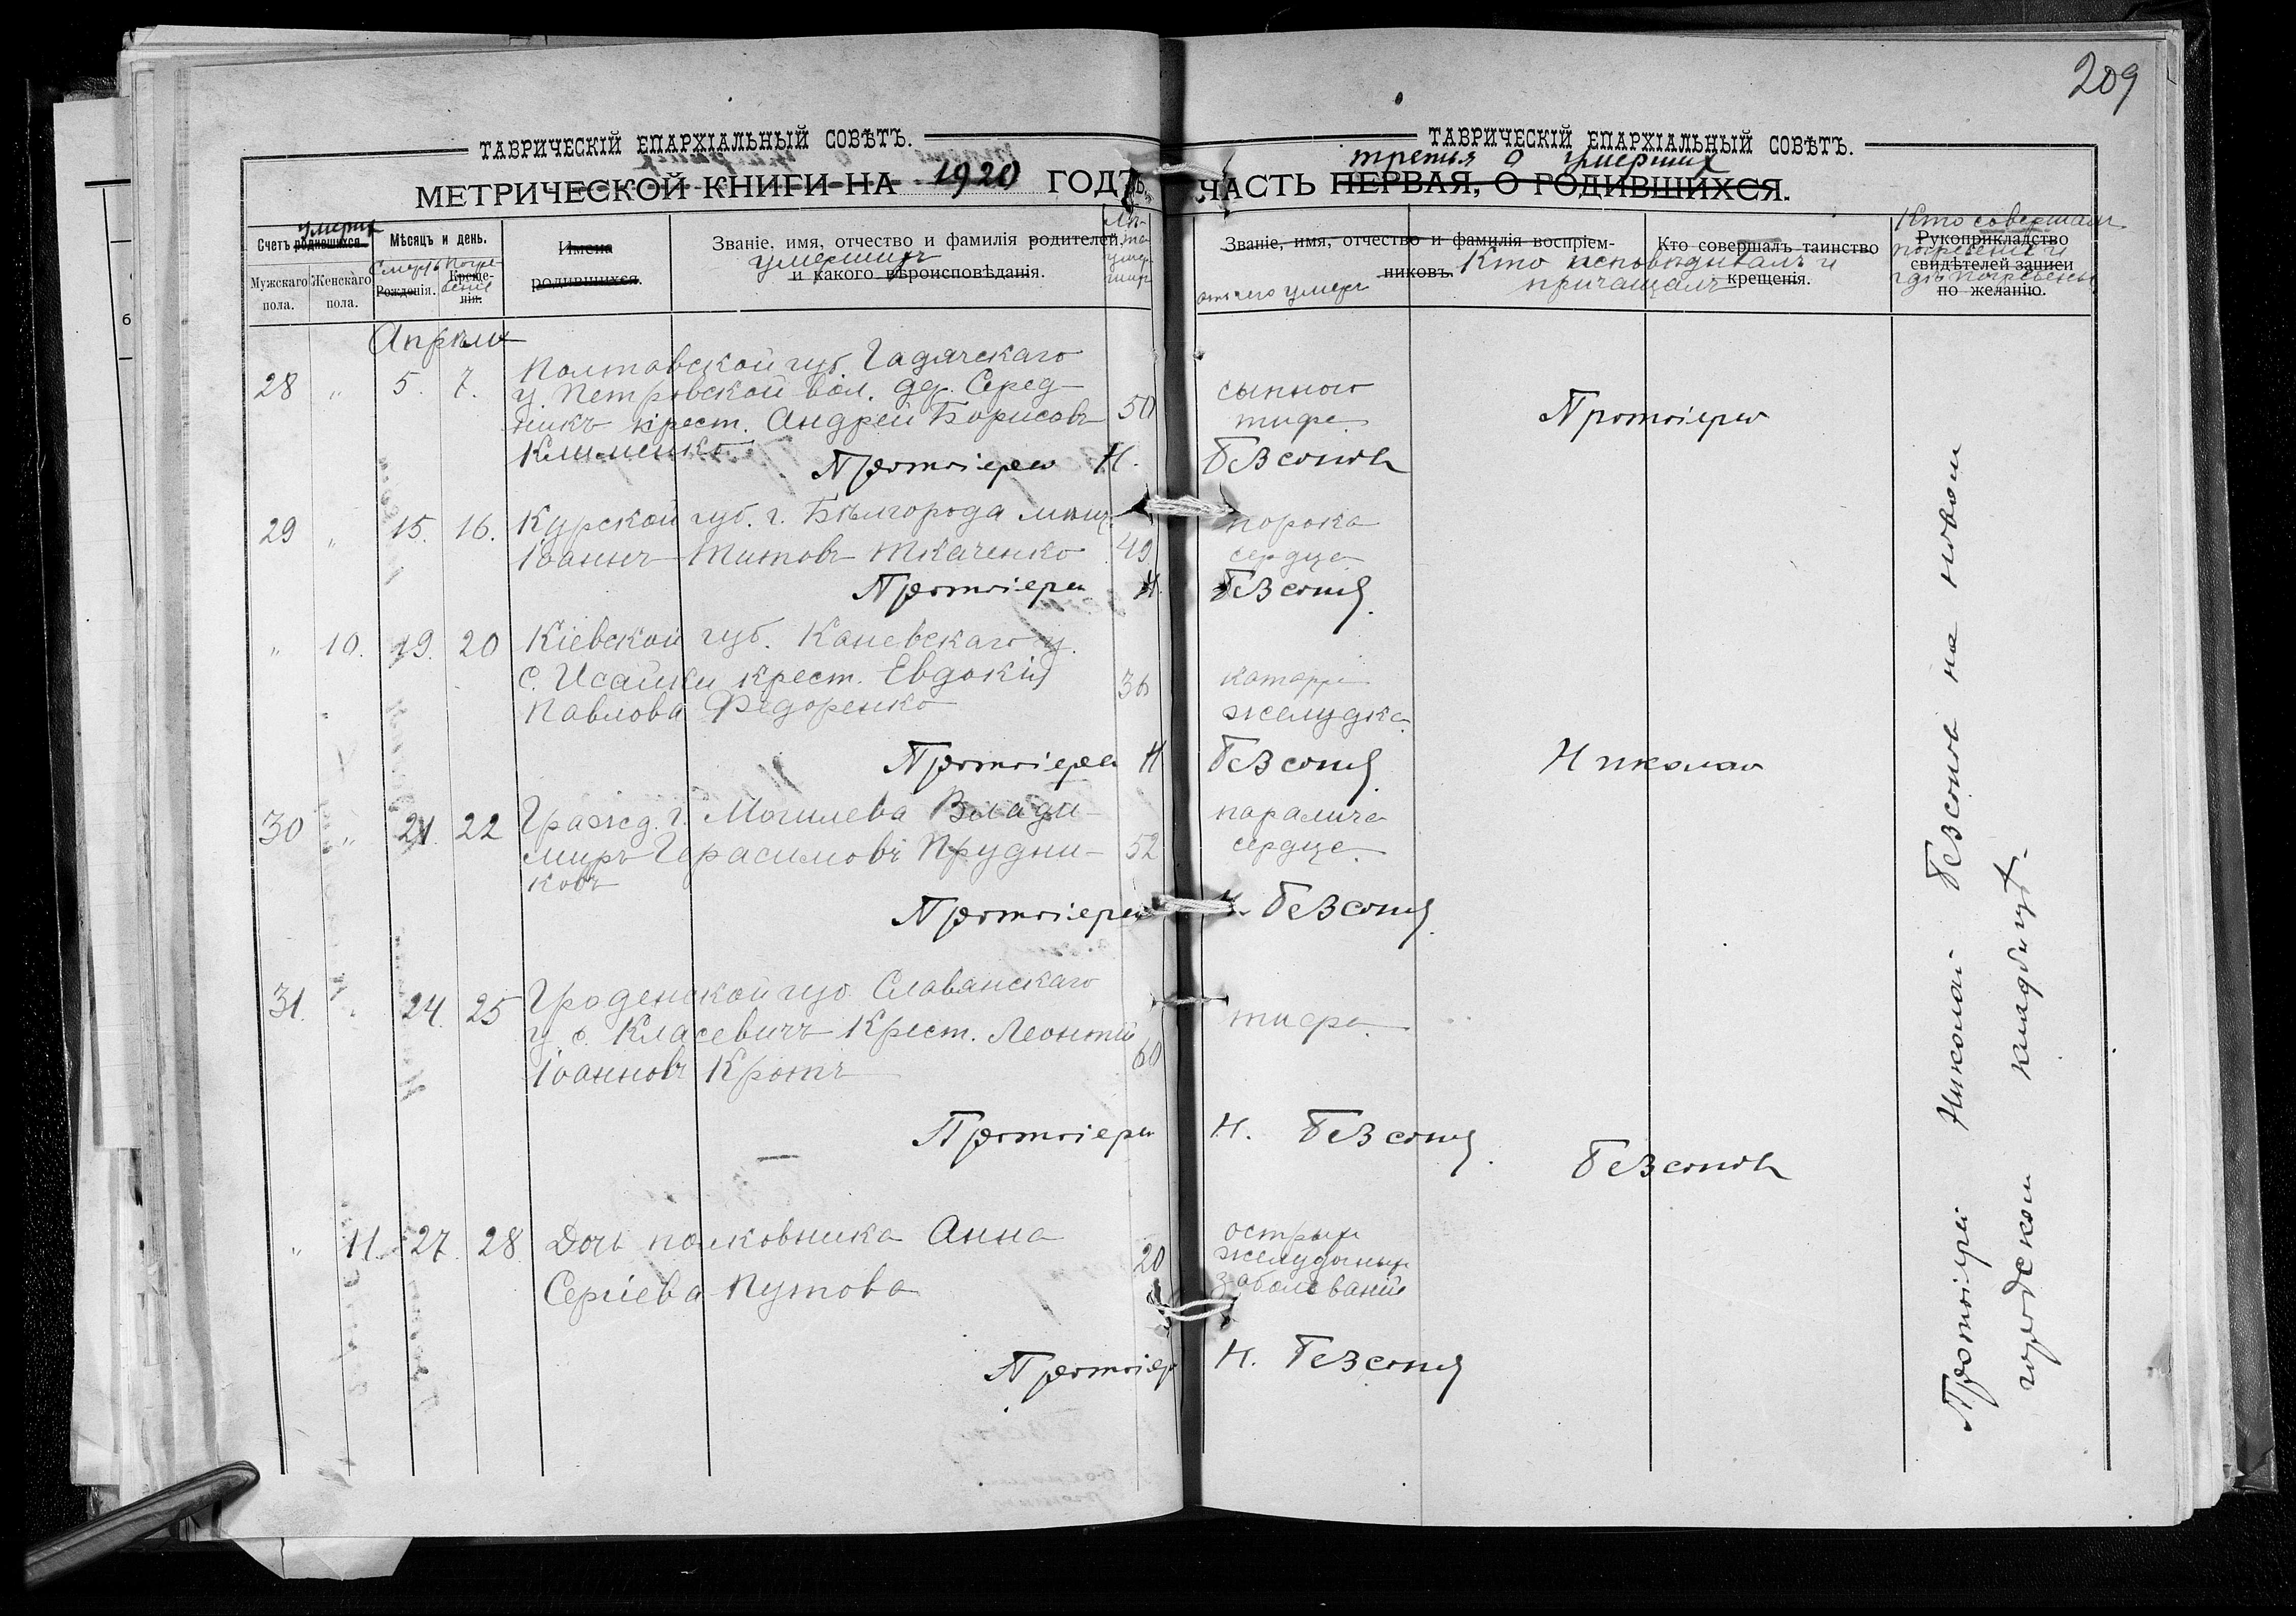 209
ТАВРИЧЕСКІЙ ЕПАРХІАЛЬНЫЙ СОВѢТЪ.
МЕТРИЧЕСКОЙ КНИГИ НА 1920 ГОДЪ,
умерш
Счетъ родившихся.
Мѣсяцъ и день.
Имена
родившихся.
Званіе, имя, отчество и фамилія родителей,
умершихъ
и какого вѣроисповѣданія.
Лѣ-
та
умер-
ших
Мужскаго
пола.
Женскаго
пола.
Смерть
Рожденія.
Погре
бенія
Креще-
нія.
Апрѣль
28 „ 5. 7. Полтавской губ. Гадячскаго
у. Петровской вол. дер. Серед-
никъ крест. Андрей Борисовъ 50
Клименко
Протоіерей Н.
29 „ 15. 16. Курской губ. г. Бѣлгорода мѣщ.
Іоаннъ Титовъ Ткаченко 49
Протоіерей Н.
„ 10. 19. 20 Кіевской губ. Каневскаго у.
с. Исайки крест. Евдокія 36
Павлова Федоренко
Протоіерей Н
30 „ 21. 22 Гражд. г. Могилева Влади-
миръ Герасимовъ Прудни- 52
ковъ
Протоіерей
31. „ 24. 25 Гроденской губ. Славянскаго
у. с. Класевичъ Крест. Леонтій
Іоанновъ Кротъ 60
Протоіерей
„ 11. 27. 28. Дочь полковника Анна
20
Сергіева Путова
Протоіер
ТАВРИЧЕСКІЙ ЕПАРХІАЛЬНЫЙ СОВѢТЪ.
третья о умерших
ЧАСТЬ ПЕРВАЯ, О РОДИВШИХСЯ.
Званіе, имя, отчество и фамилія воспріем-
никовъ.
отъ чего умеръ
Кто исповѣдывалъ и
причащалъ
Кто совершалъ таинство
крещенія.
Кто совершалъ
Рукоприкладство
погребеніе и
свидѣтелей записи
гдѣ погребены
по желанію.
сыпного
тифа
Безсоновъ
порока
сердца
Безсоновъ
катарра
желудка
Безсоновъ
паралича
сердца
Н. Безсоновъ
тифа
Н. Безсоновъ
острых
желудочных
заболѣваній
Н. Безсоновъ
Протоіерей
Николай
Безсоновъ
Протоіерей Николай Безсоновъ на новом
городском кладбищѣ